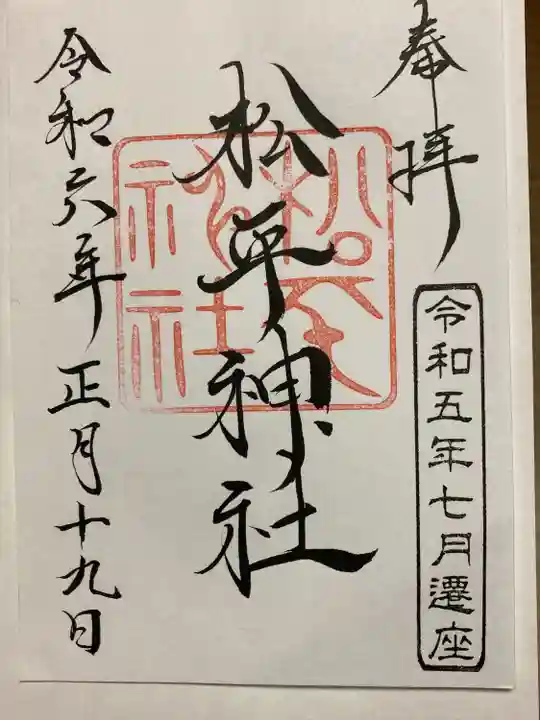 奉拝
令和五年七月遷座
松平神社
松平
神社
令和六年正月十九日